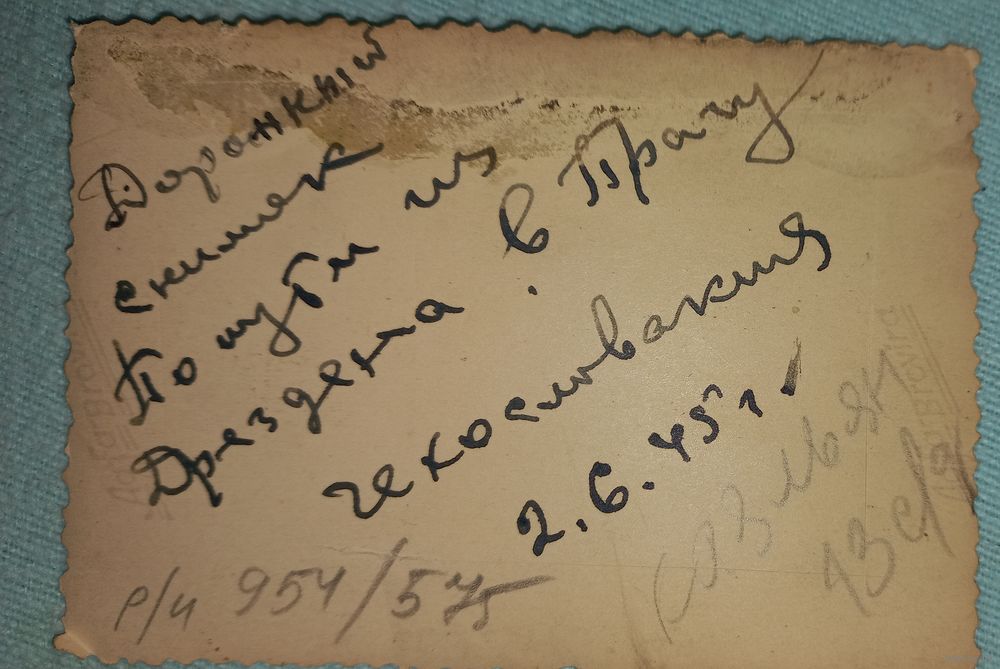 Дорожный
снимок
По пути из
Дрездена. в Прагу
Чехословакия
2.6.45 г.
р/ч 954/57